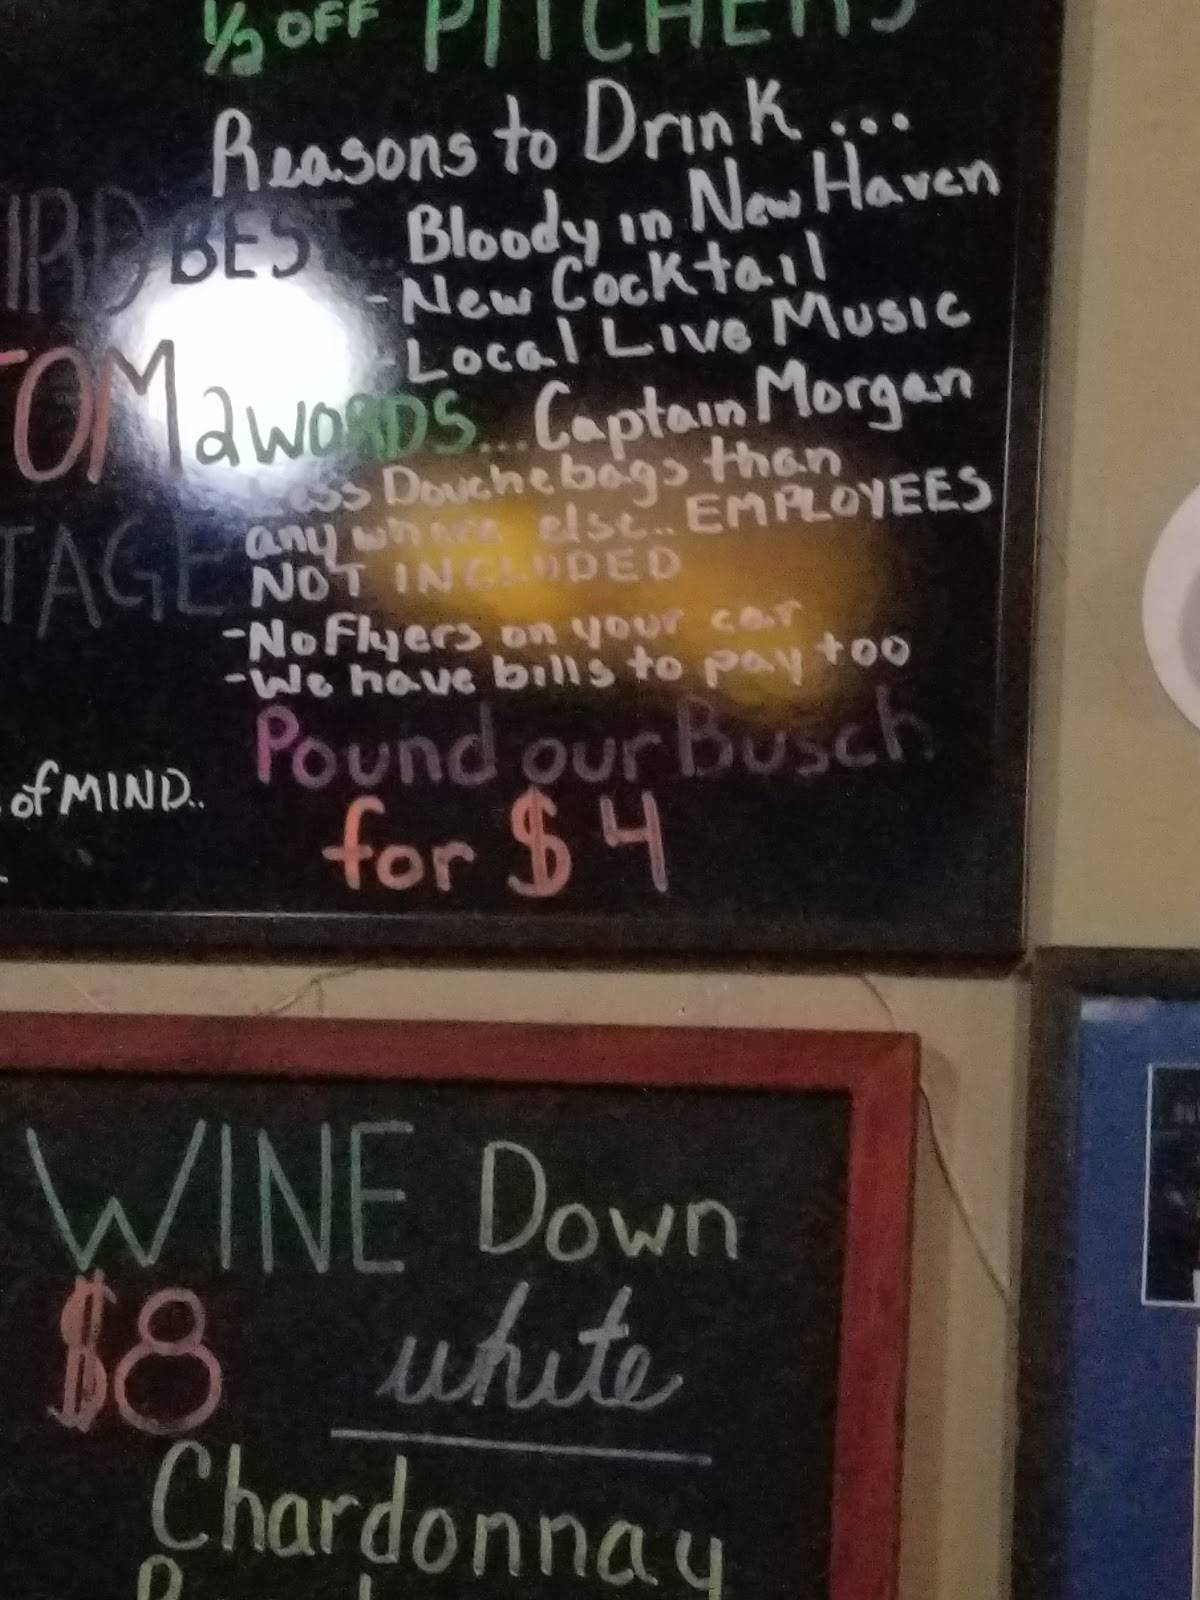 1/2 OFF PITCHERS
Reasons to Drink...
BEST... Bloody in New Haven
- New Cocktail
- Local Live Music
TOM 2 WORDS... Captain Morgan
Less Douchebags than
anywhere else.. EMPLOYEES
TAGE NOT INCLUDED
- No Flyers on your car
- We have bills to pay too
Pound our Busch
of MIND..
for $4
WINE Down
$8 white
Chardonnay